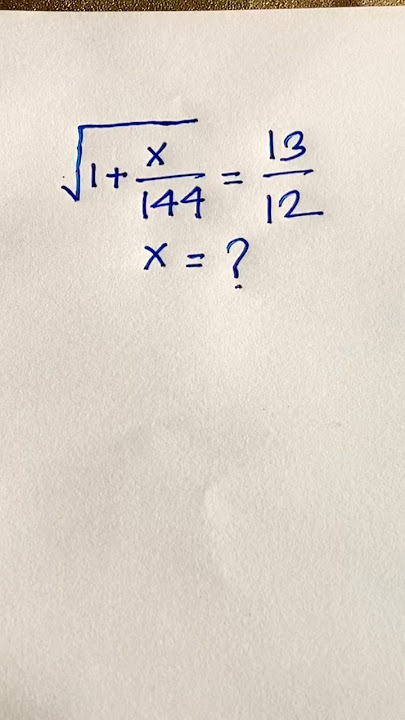 √(1 + x/144) = 13/12
x = ?